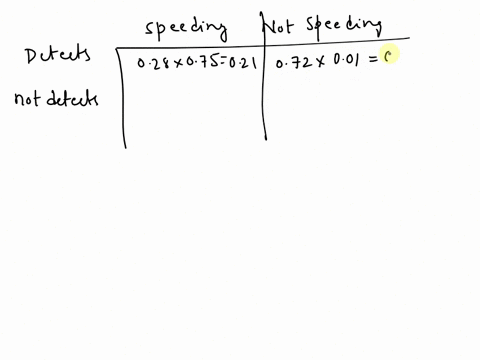 speeding Not Speeding
Detects 0.28 x 0.75 = 0.21 0.72 x 0.01 = 0
not detects